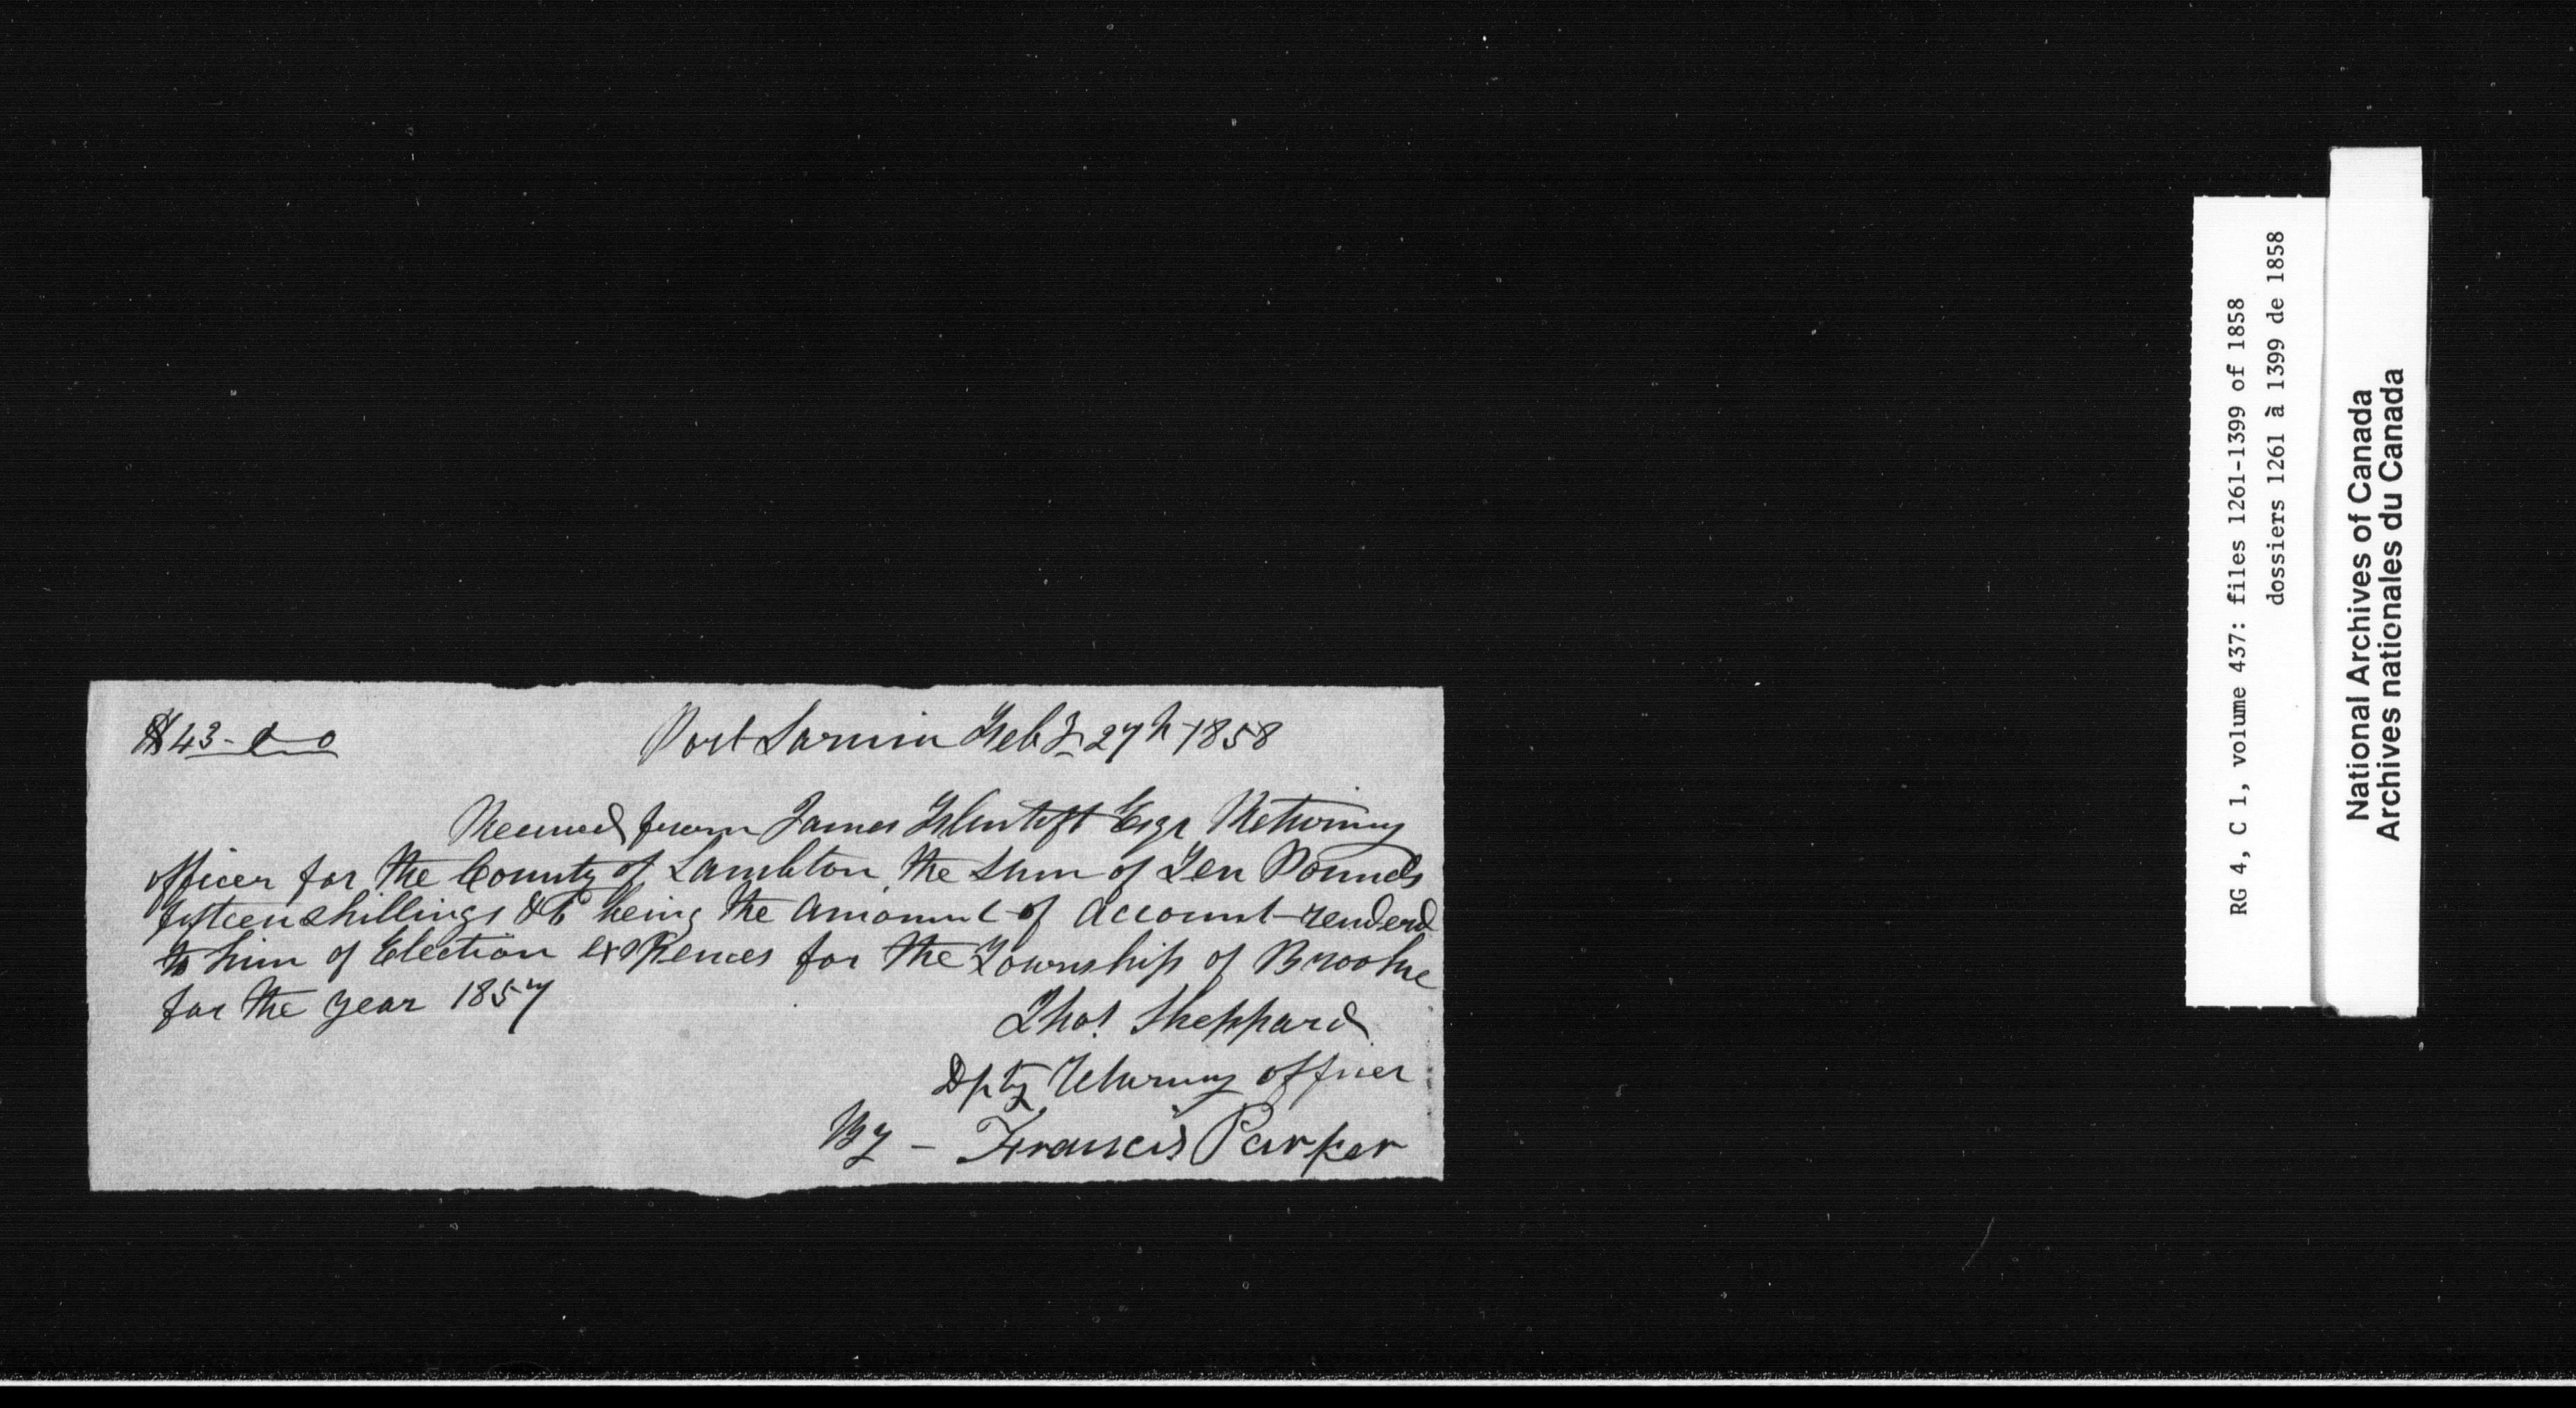 $43-00
Port Sarnia Feby 27th 1858
Received from James Flintoft Esqr Returning
officer for the County of Lambton the sum of Ten Pounds
fifteen shillings &c being the amount of account renderd
to him of Election expences for the Township of Brooke
for the year 1857
Thos Sheppard
Dpty Returning officer
By - Francis Parker
RG 4, C 1, volume 437: files 1261-1399 of 1858
dossiers 1261 à 1399 de 1858
National Archives of Canada
Archives nationales du Canada